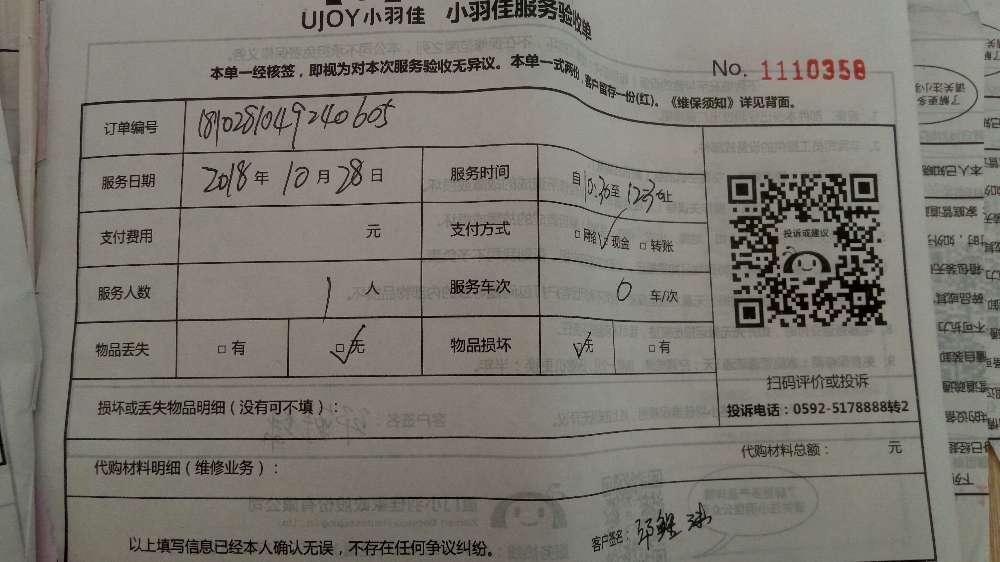 UJOY小羽佳 小羽佳服务验收单
本单一经核签，即视为对本次服务验收无异议。本单一式两份，客户留存一份(红)。《维保须知》详见背面。
No. 1110358
订单编号 1810281049240605
服务日期 2018年10月28日 服务时间 自10:30至12:30止
支付费用 元 支付方式 □网络 □现金 □转账
服务人数 1人 服务车次 0 车/次
物品丢失 □有 □无 物品损坏 □无 □有
投诉或建议
扫码评价或投诉
投诉电话：0592-5178888转2
损坏或丢失物品明细（没有可不填）：
代购材料明细（维修业务）：
代购材料总额： 元
客户签名：
以上填写信息已经本人确认无误，不存在任何争议纠纷。